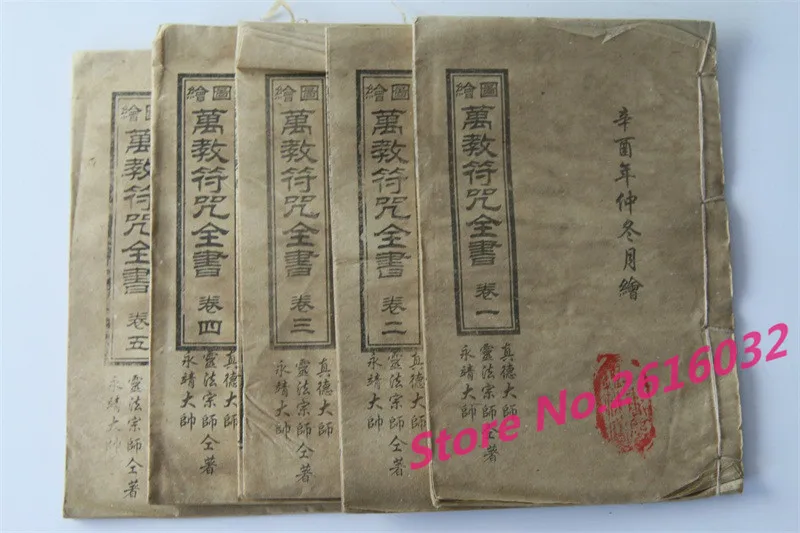 圖繪
萬教符咒全書 卷一
真德大师
靈法宗师仝著
永靖大帅
辛酉年仲冬月繪
圖繪
萬教符咒全書 卷二
真德大师
靈法宗师仝著
永靖大帅
圖繪
萬教符咒全書 卷三
真德大师
靈法宗师仝著
永靖大帅
圖繪
萬教符咒全書 卷四
真德大师
靈法宗师仝著
永靖大帅
繪
萬教符咒全書 卷五
靈法宗师仝著
永靖大帅
Store No.2616032